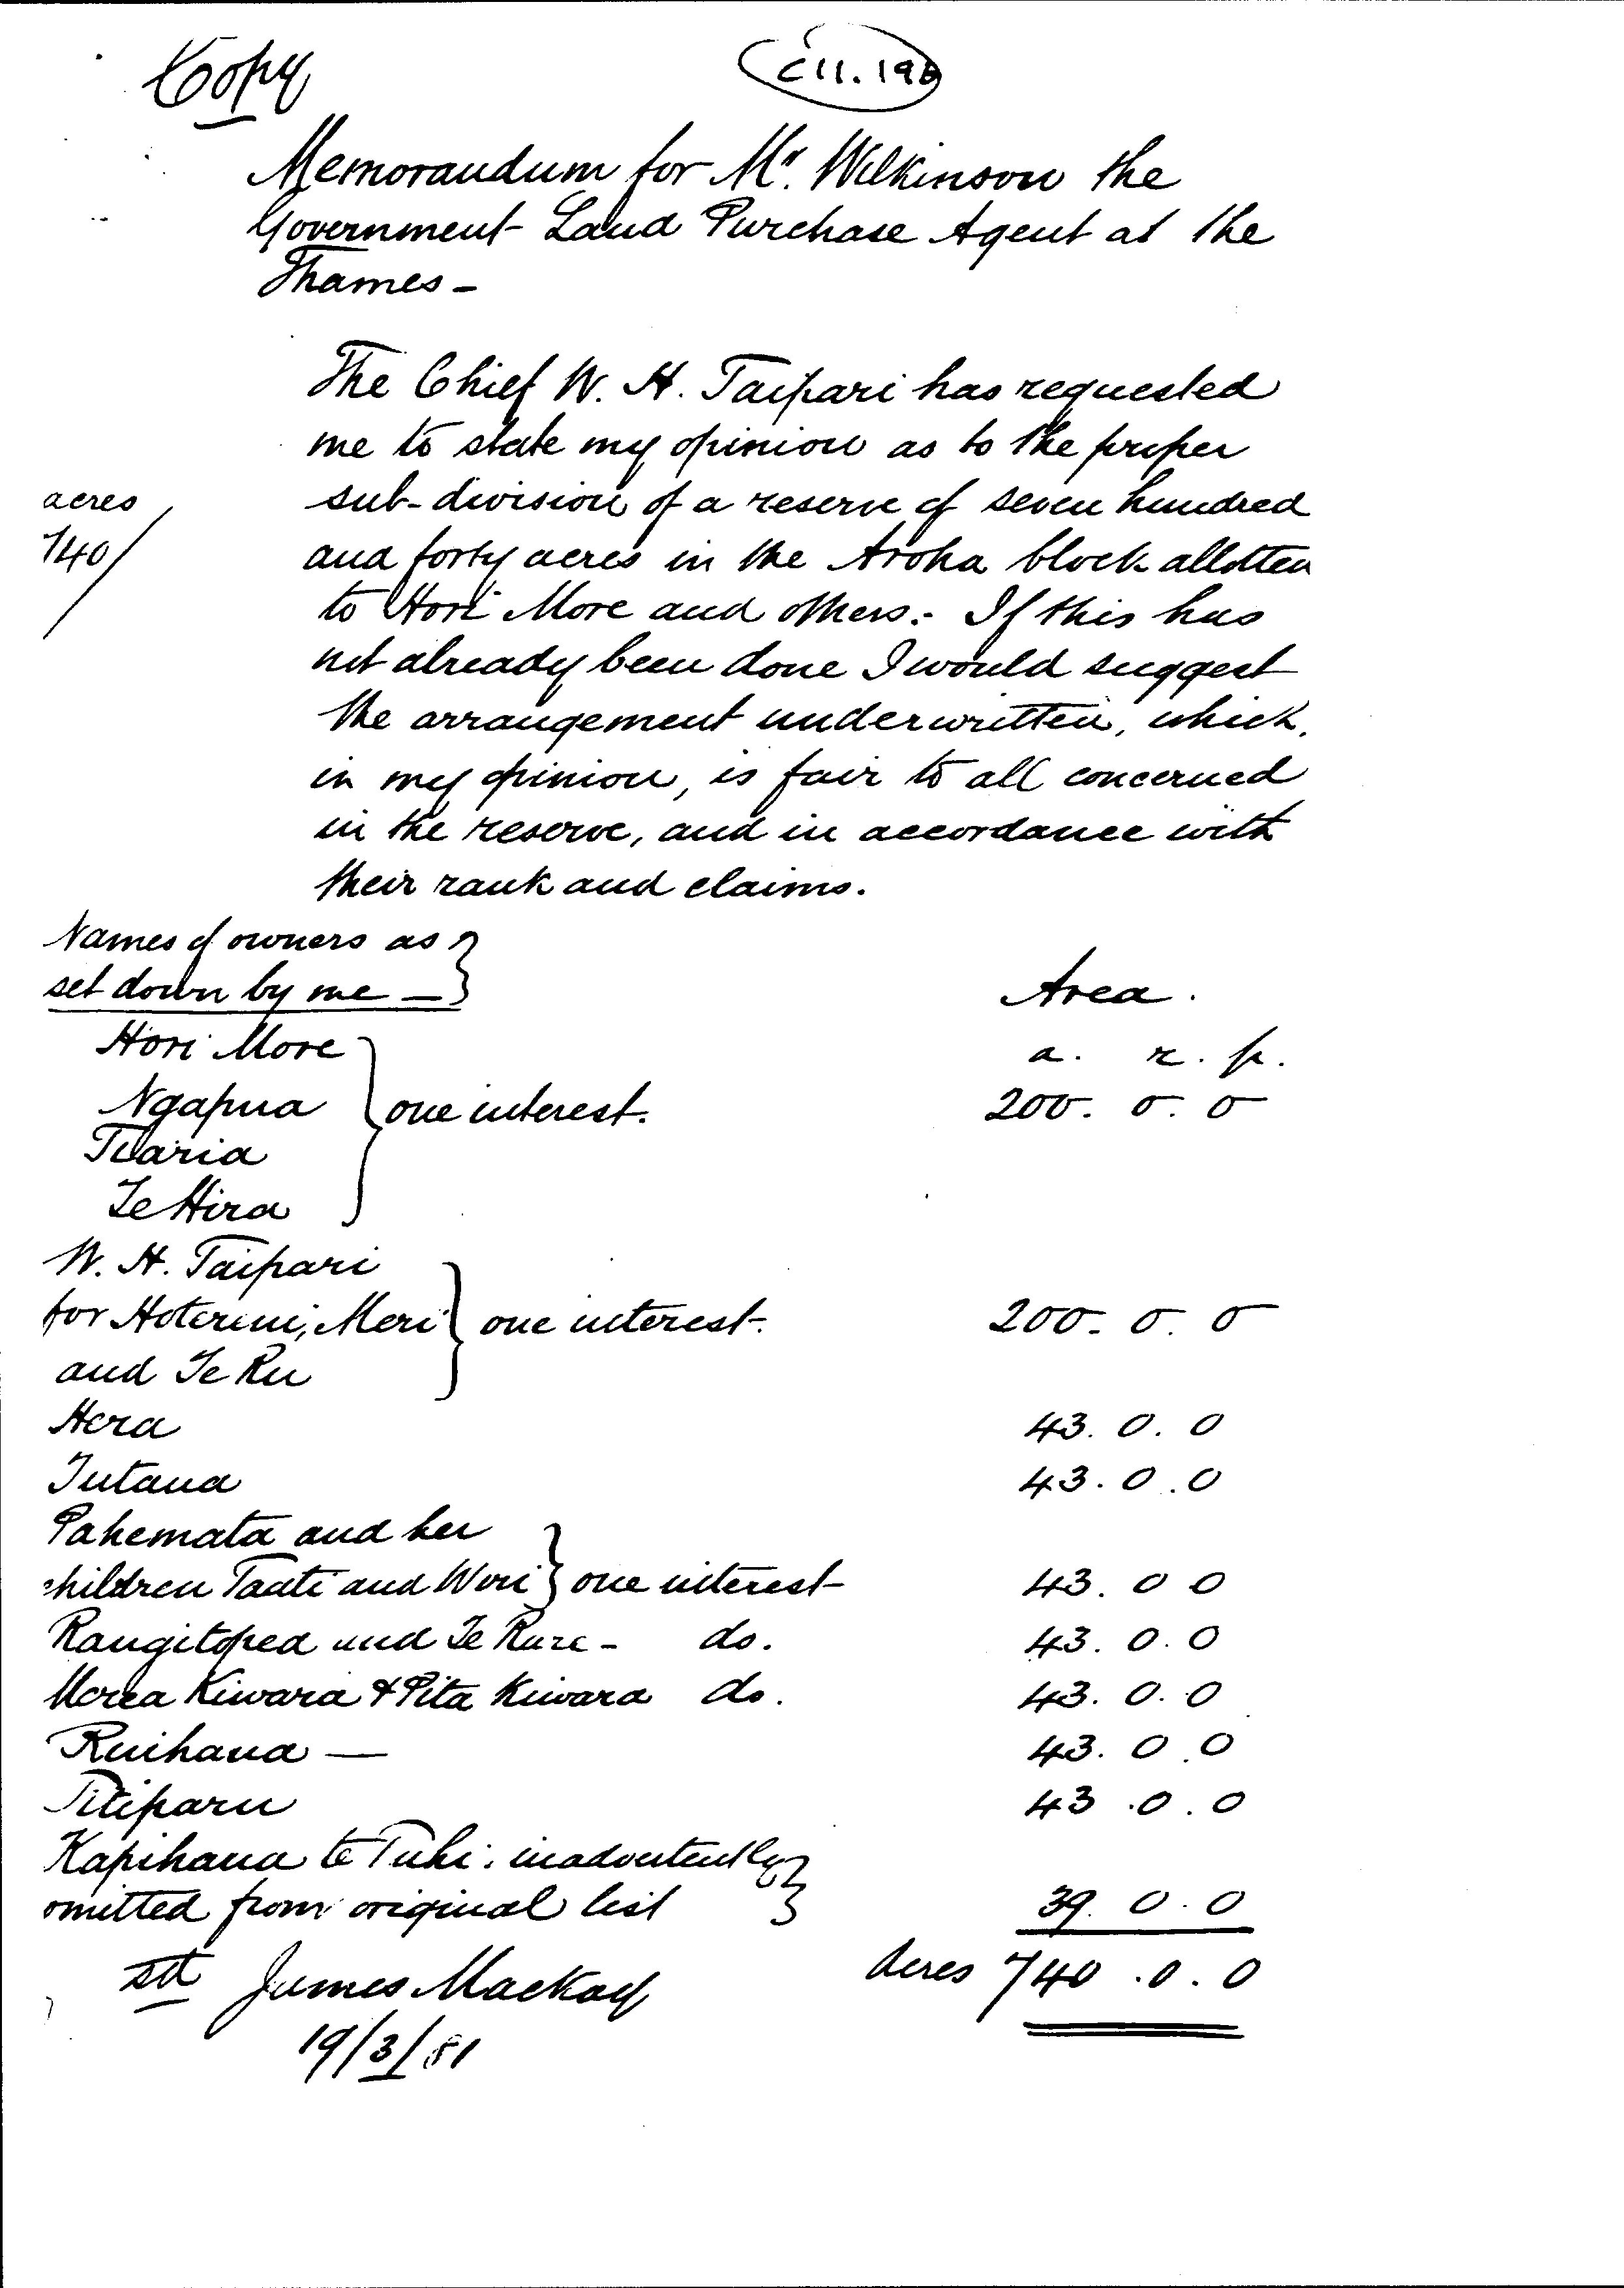 Copy
C11.196
Memorandum for Mr. Wilkinson the
Government Land Purchase Agent at the
Thames -
The Chief W. H. Taipari has requested
me to state my opinion as to the proper
acres
sub-division of a reserve of seven hundred
740/
and forty acres in the Aroha block allotted
to Hori More and others:- If this has
not already been done I would suggest
the arrangement underwritten, which,
in my opinion, is fair to all concerned
in the reserve, and in accordance with
their rank and claims.
Names of owners as }
set down by me - } Area.
Hori More } a. r. p.
Ngapua } one interest. 200. 0. 0
Tiaria
Te Hira
W. H. Taipari
for Hoterene, Meri } one interest. 200. 0. 0
and Te Ru
Hera 43. 0. 0
Tutana 43. 0. 0
Pakemata and her
children Taati and Wiri } one interest 43. 0 0
Rangitopea and Te Rure - do. 43. 0. 0
Merea Kiwara & Pita Kiwara do. 43. 0. 0
Ruihana — 43. 0. 0
Titiparu 43. 0. 0
Kapihana te Tuhi. inadvertently }
omitted from original list } 39. 0. 0
sd James Mackay Acres 740. 0. 0
19/3/81